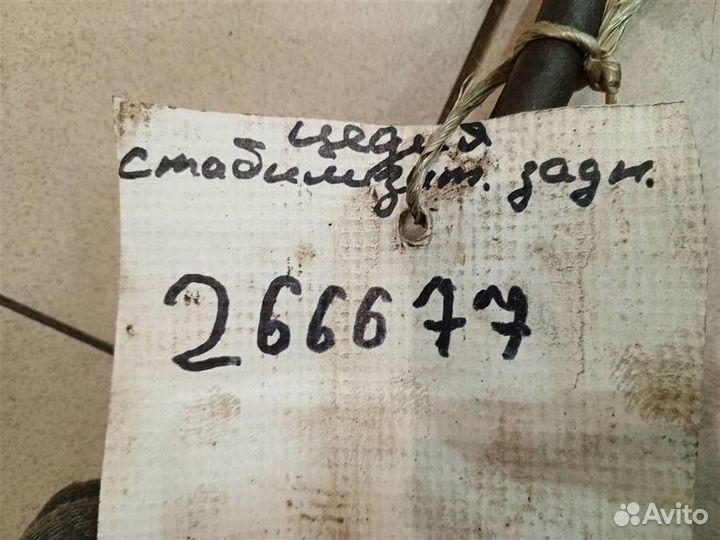 стабилизат. задн.
266677
Avito